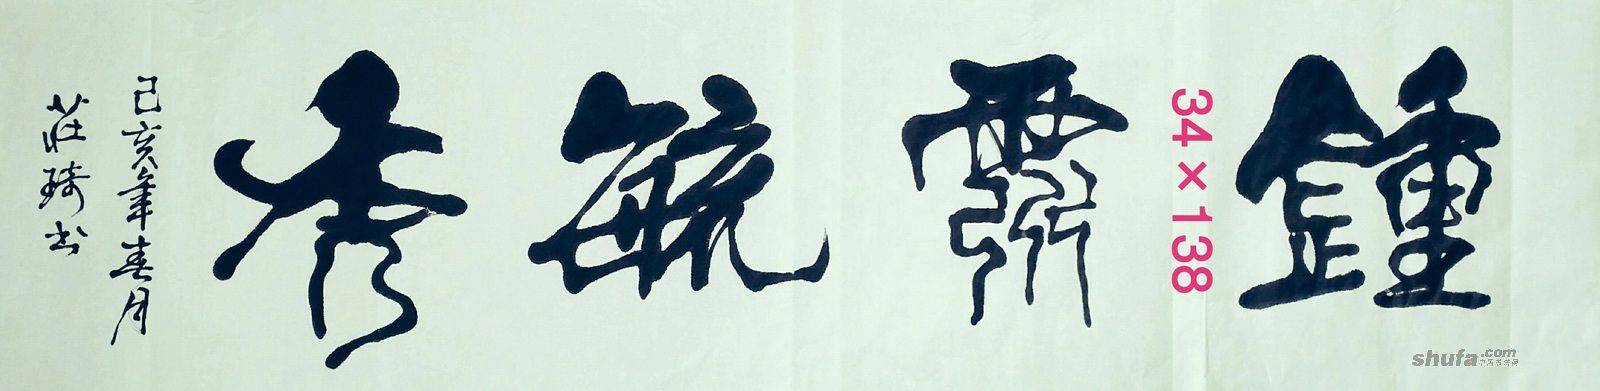 鍾靈毓秀
己亥年春月
莊琦书
34×138
shufa.com